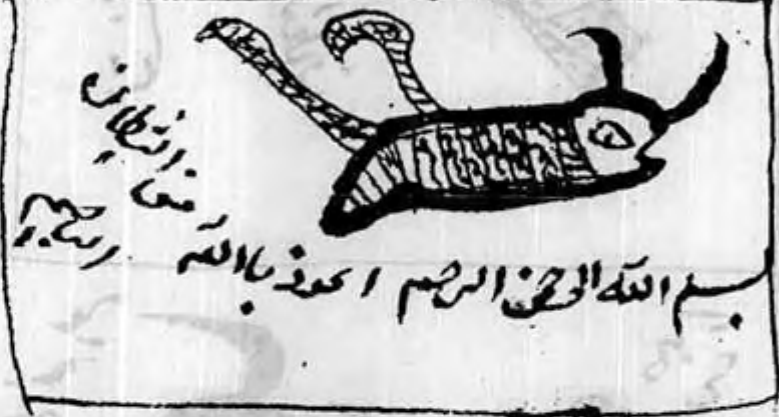 بسم الله الرحمن الرحيم اعوذ باالله من الشيطان الرجيم